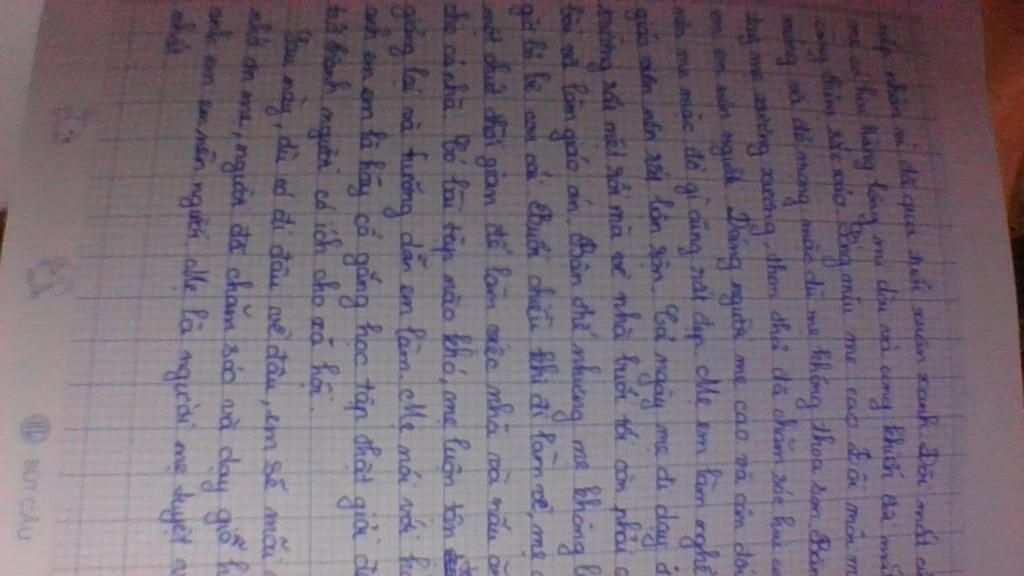 nếp nhăn vì đã qua tuổi xuân xanh. Đôi mắt
mẹ có hai hàng lông mi dài và cong khiến đôi mắt
càng thêm sắc sảo. Sống mũi mẹ cao. Đôi môi m
mỏng và đỏ mọng mặc dù mẹ không thoa son. Bàn
tay mẹ xương xương, thon thả đã chăm sóc hai
em nên người. Dáng người mẹ cao và cân đối
nên mẹ mặc đồ gì cũng rất đẹp. Mẹ em làm nghề
giáo viên nên rất bận rộn. Cả ngày mẹ đi dạy ở
trường rất mệt rồi mà về nhà buổi tối còn phải
bài và làm giáo án. Bận thế nhưng mẹ không
gờ lơ là con cái. Buổi chiều khi đi làm về, mẹ
một chút thời gian để làm việc nhà và nấu ăn
cho cả nhà. Có bài tập nào khó, mẹ luôn tận
giảng bài và hướng dẫn em làm. Mẹ nói với h
anh em em là hãy cố gắng học tập thật giỏi để
trở thành người có ích cho xã hội.
Sau này, dù có đi đâu về đâu, em sẽ mãi
nhớ ơn mẹ, người đã chăm sóc và dạy giỗ h
anh em em nên người. Mẹ là người mẹ tuyệt v
nhất.